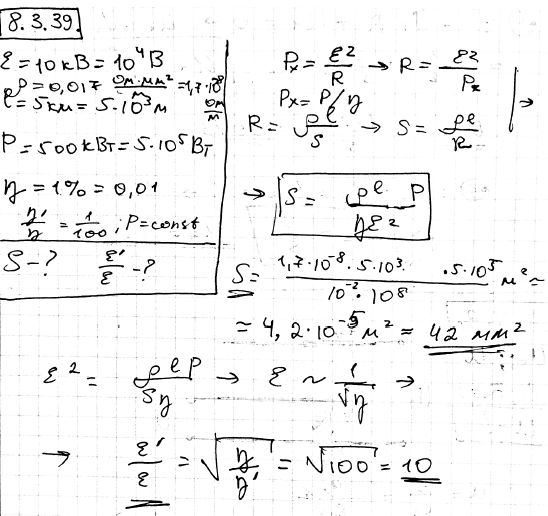 8.3.39.
ℰ = 10 кВ = 10⁴ В
ρ = 0,017 Ом·мм²/м = 1,7·10⁻⁸ Ом/м
l = 5 км = 5·10³ м
P = 500 кВт = 5·10⁵ Вт
η = 1% = 0,01
η'/η = 1/100 ; P = const
S - ? ℰ'/ℰ - ?
Pₓ = ℰ²/R → R = ℰ²/Pₓ
Pₓ = P/η
R = ρl/S → S = ρl/R | →
→ S = ρl P/ηℰ²
S = 1,7·10⁻⁸·5·10³·5·10⁵/10⁻²·10⁸ м² ≈
≈ 4,2·10⁻⁵ м² = 42 мм²
ℰ² = ρlP/Sη → ℰ ~ 1/√η →
→ ℰ'/ℰ = √η/η' = √100 = 10